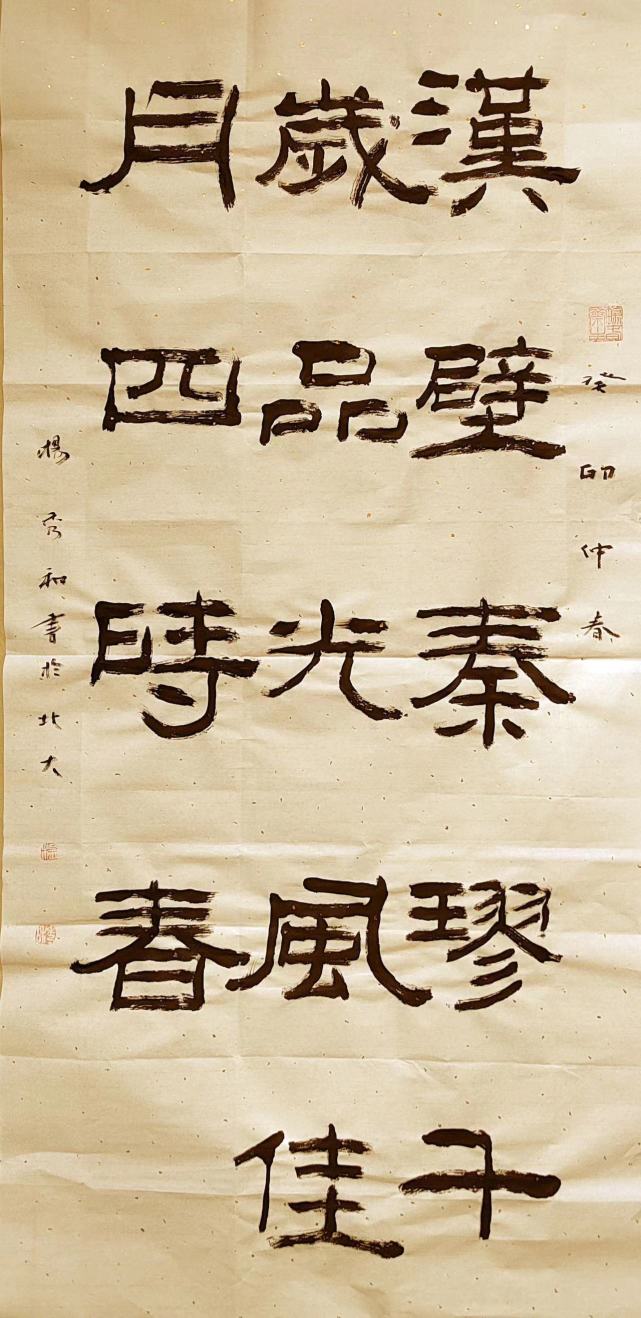 癸卯仲春
漢璧秦璆千
歲品光風佳
月四時春
楊秀和書於北大